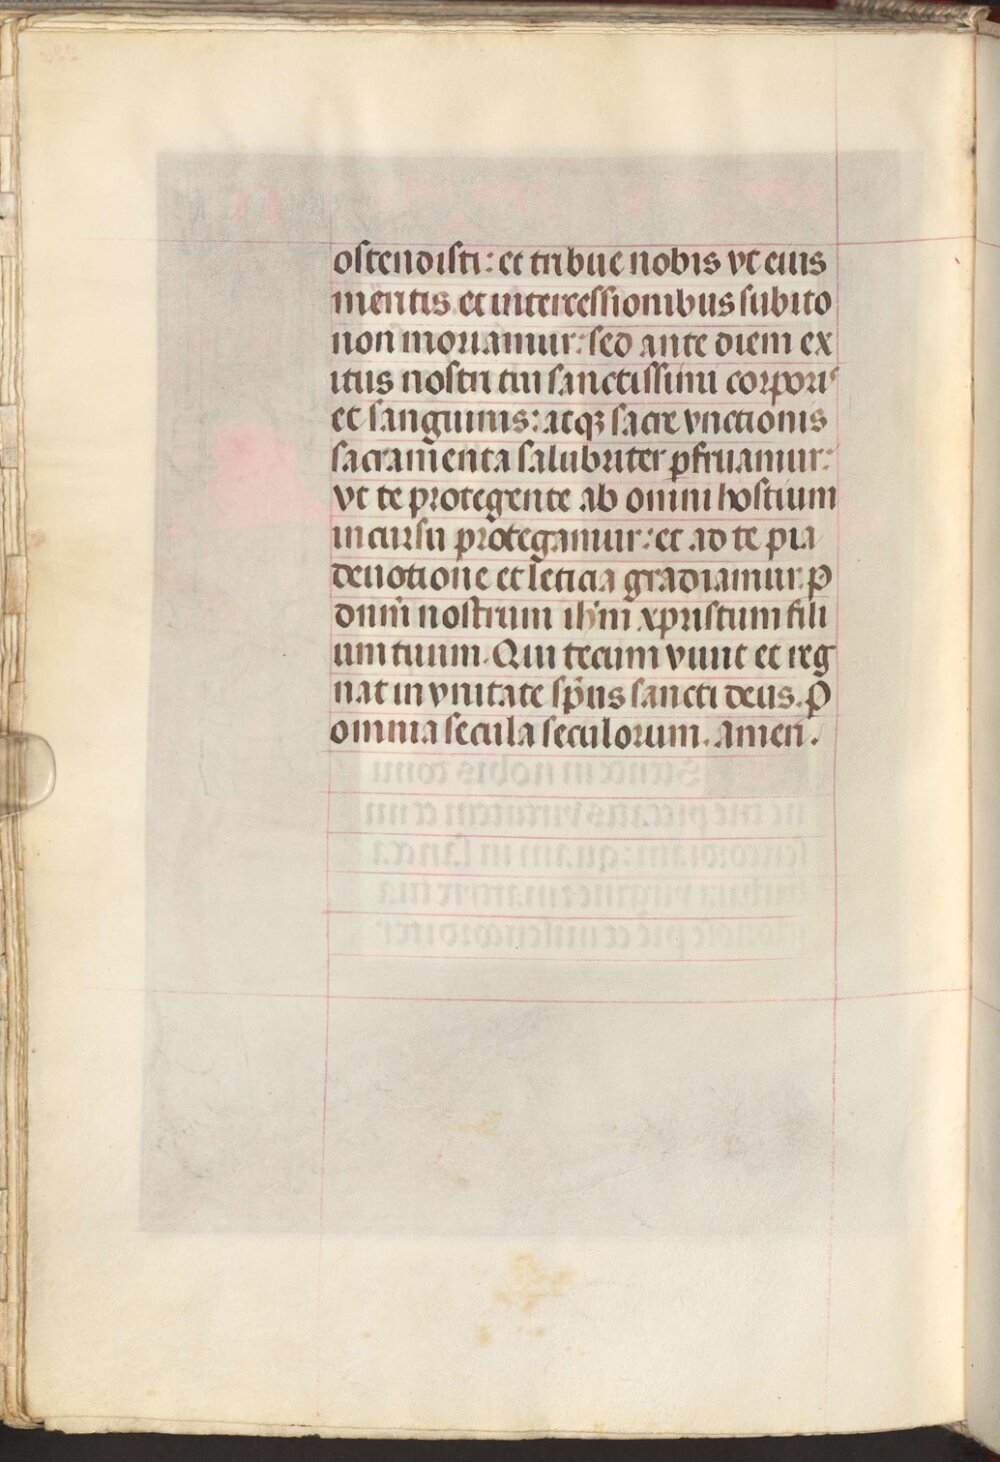 ostendisti: et tribue nobis vt eius
meritis et intercessionibus subito
non moriamur: sed ante diem ex
itus nostri tui sanctissimi corporis
et sanguinis: atqꝫ sacre vnctionis
sacramenta salubriter ꝑfruamur:
vt te protegente ab omni hostium
incursu protegamur: et ad te pia
deuotione et leticia gradiamur. ꝑ
dnm̄ nostrum ihm̄ xpristum fili
um tuum. Qui tecum viuit et reg
nat in vnitate sp̄us sancti deus. ꝑ
omnia secula seculorum. amen.